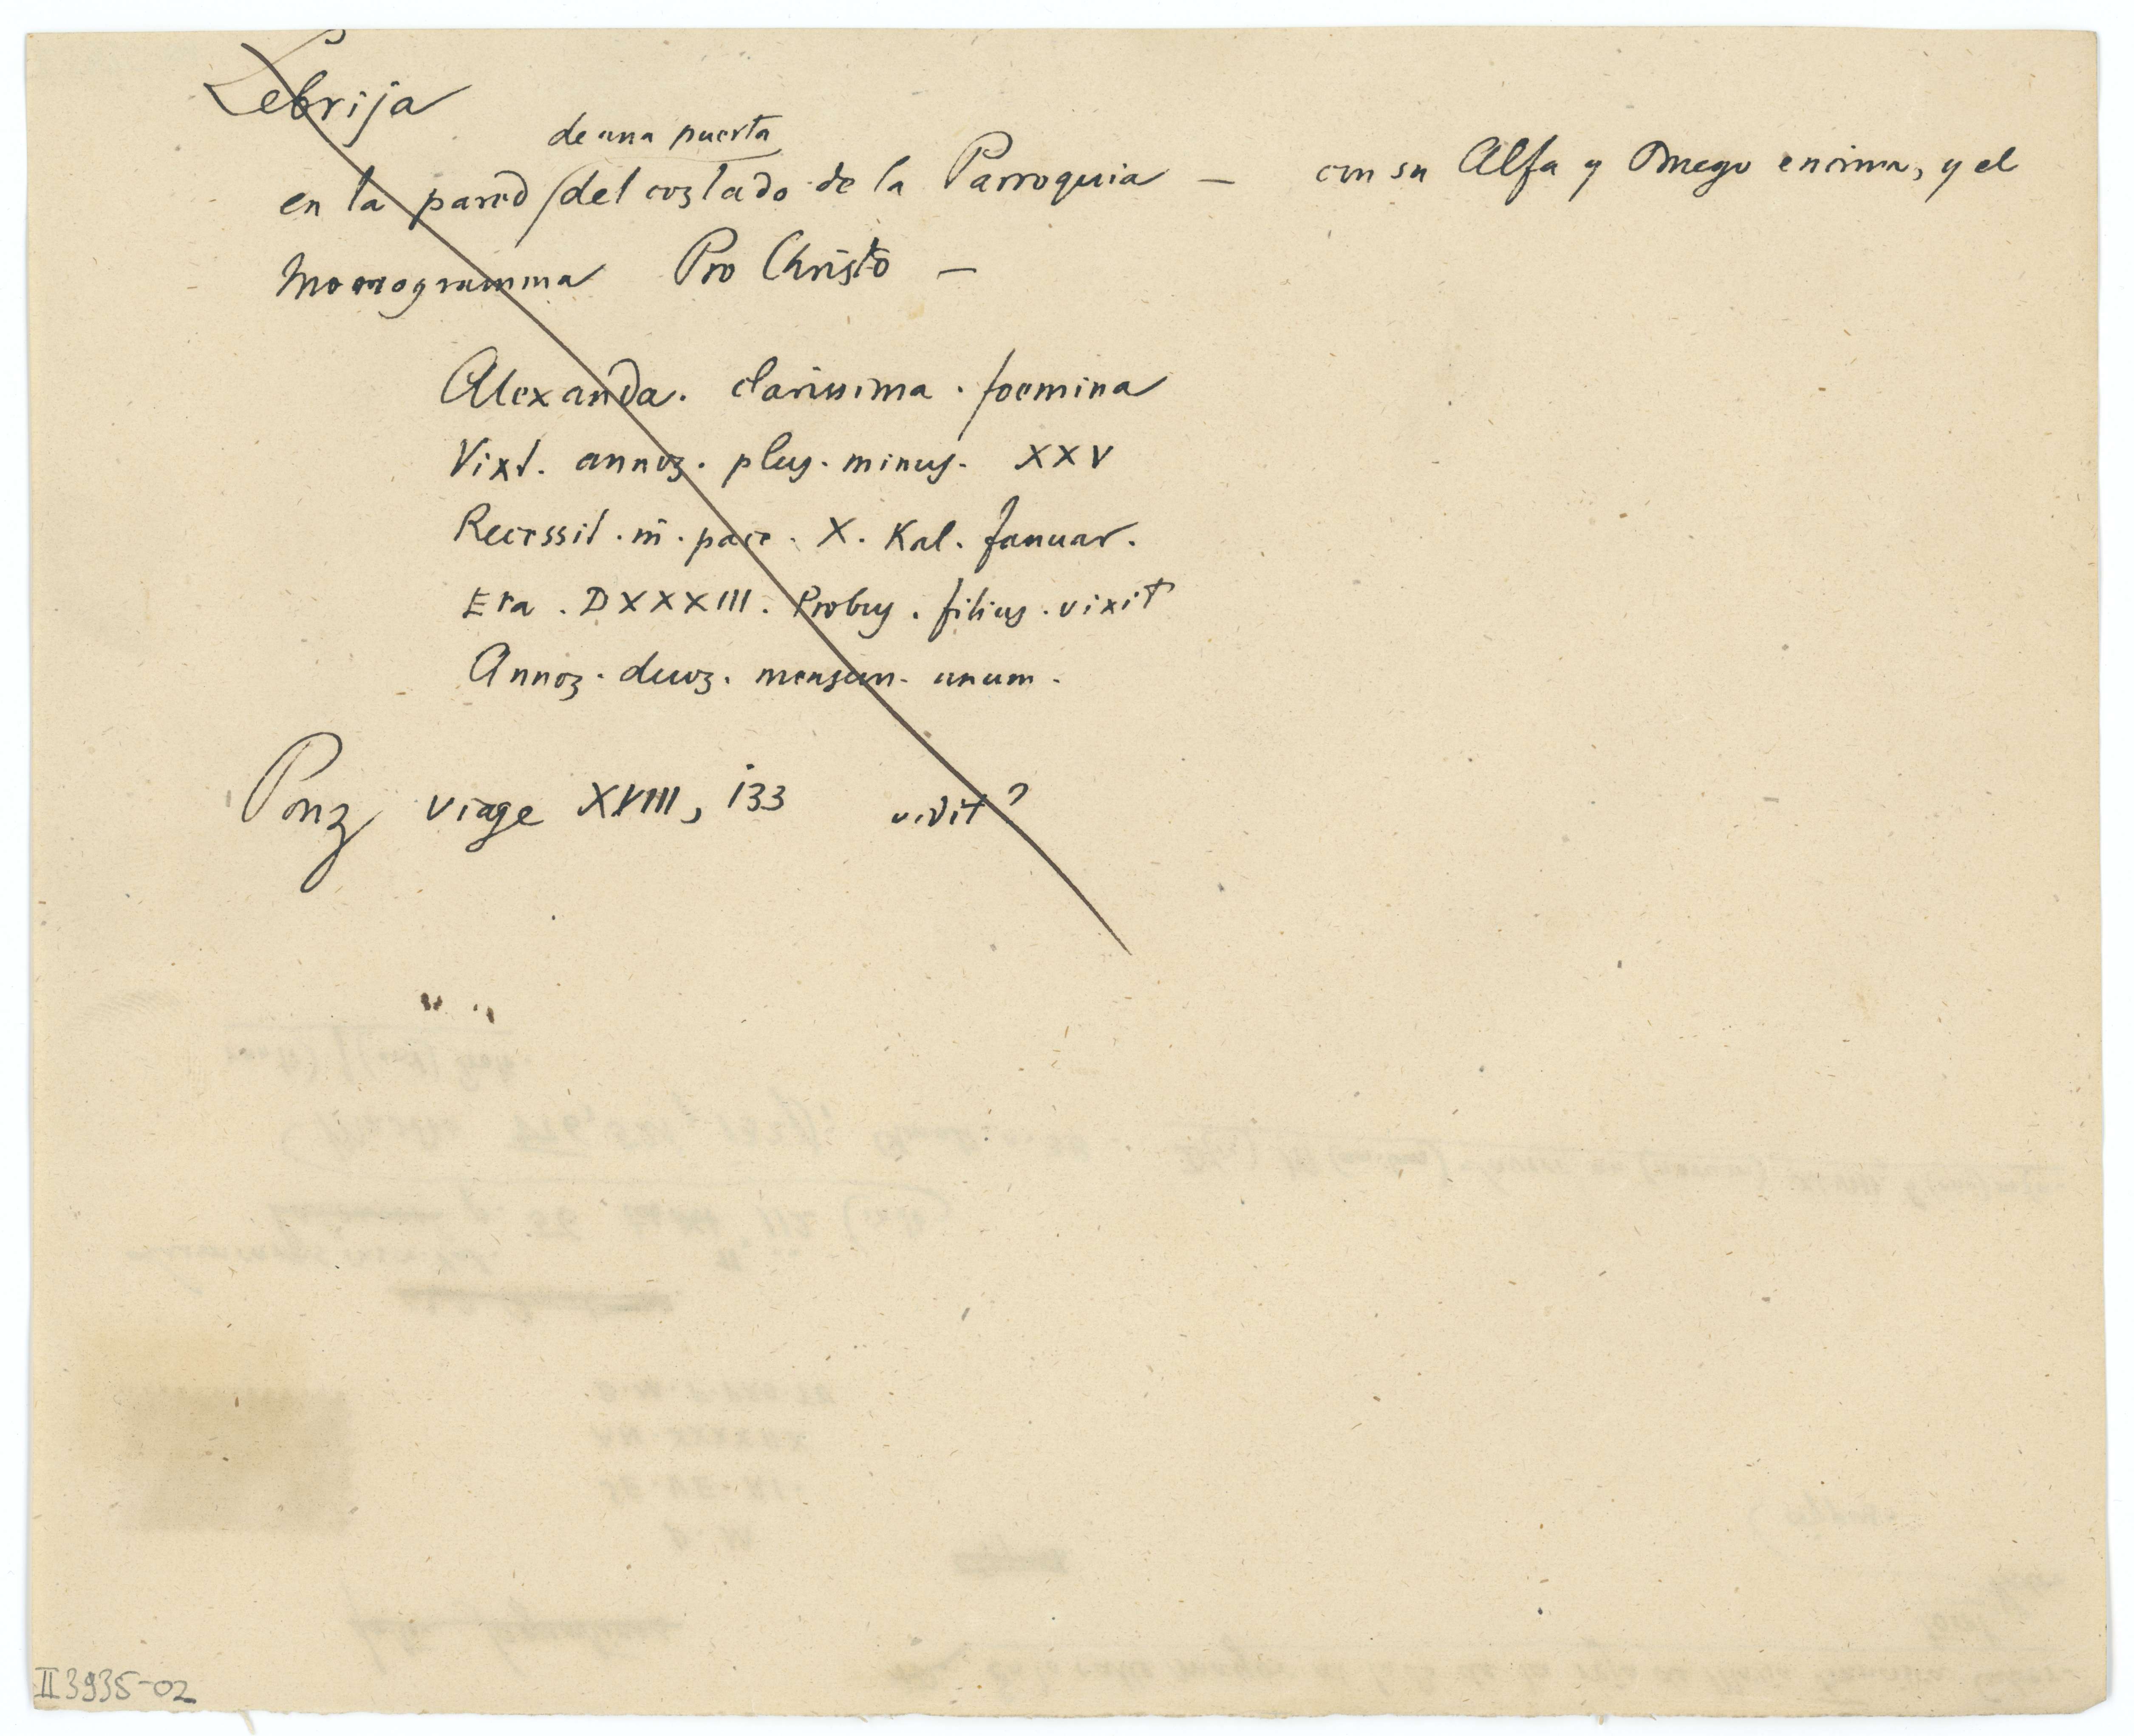 Lebrija
de una puerta
en la pared / del costado de la Parroquia — con su Alfa y Omega encima, y el
Monogramma Pro Christo —
Alexanda. clarissima. foemina
Vixt. annos. plus. minus. XXV
Recessit. in. pace. X. Kal. Januar.
Era. DXXXIII. Probus. filius. vixit
Annos. duos. mensem. unum.
Ponz viage XVIII, 133 vidit?
II 3935-02